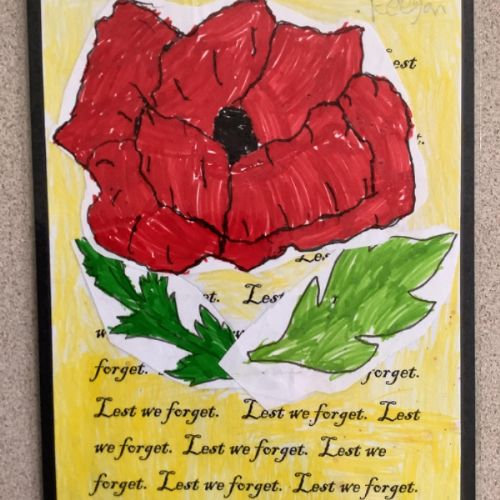 Keegan
est
t.
Les
et. Lest
forget. forget.
Lest we forget. Lest we forget. Lest
we forget. Lest we forget. Lest we
forget. Lest we forget. Lest we forget.